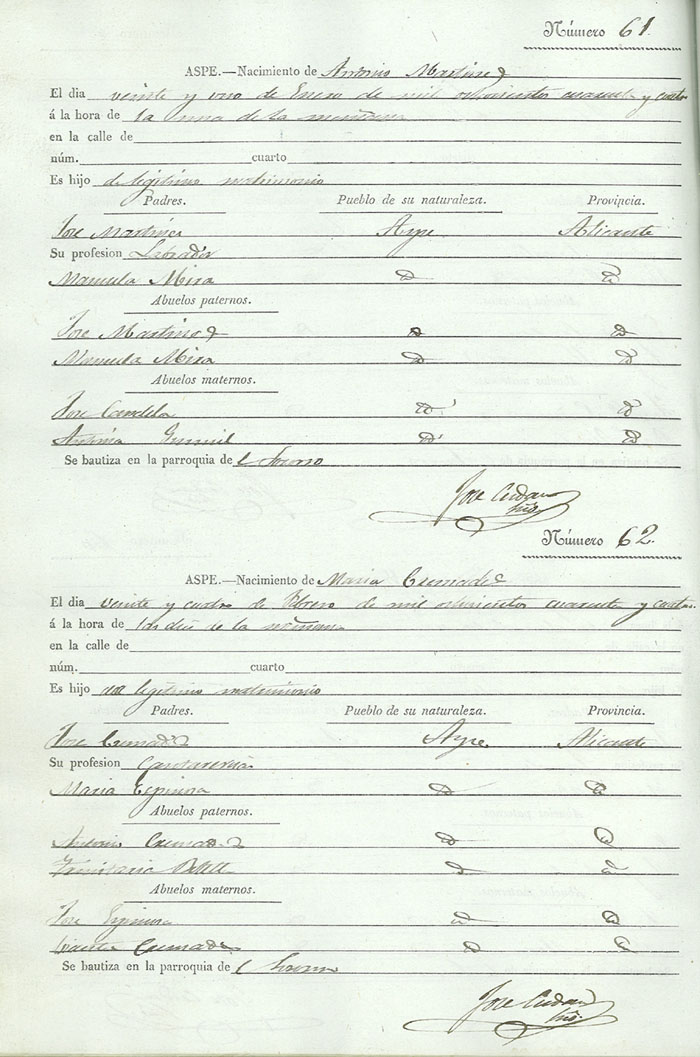 Número 61.
ASPE.—Nacimiento de Antonio Martinez
El dia veinte y uno de Enero de mil ochocientos cuarenta y cuatro
á la hora de la una de la mañana
en la calle de
núm. cuarto
Es hijo de legitimo matrimonio
Padres. Pueblo de su naturaleza. Provincia.
Jose Martinez Aspe Alicante
Su profesion Labrador
Manuela Mira
Abuelos paternos.
Jose Martinez
Manuela Mira
Abuelos maternos.
Jose Candela
Antonia
Se bautiza en la parroquia de
Jose
Número 62.
ASPE.—Nacimiento de Maria Cremades
El dia veinte y cuatro de Febrero de mil ochocientos cuarenta y cuatro
á la hora de las diez de la mañana
en la calle de
núm. cuarto
Es hijo de legitimo matrimonio
Padres. Pueblo de su naturaleza. Provincia.
Jose Cremades Aspe Alicante
Su profesion
Maria Espinosa
Abuelos paternos.
Antonio Cremades
Trinitaria
Abuelos maternos.
Jose Espinosa
Cremades
Se bautiza en la parroquia de
Jose